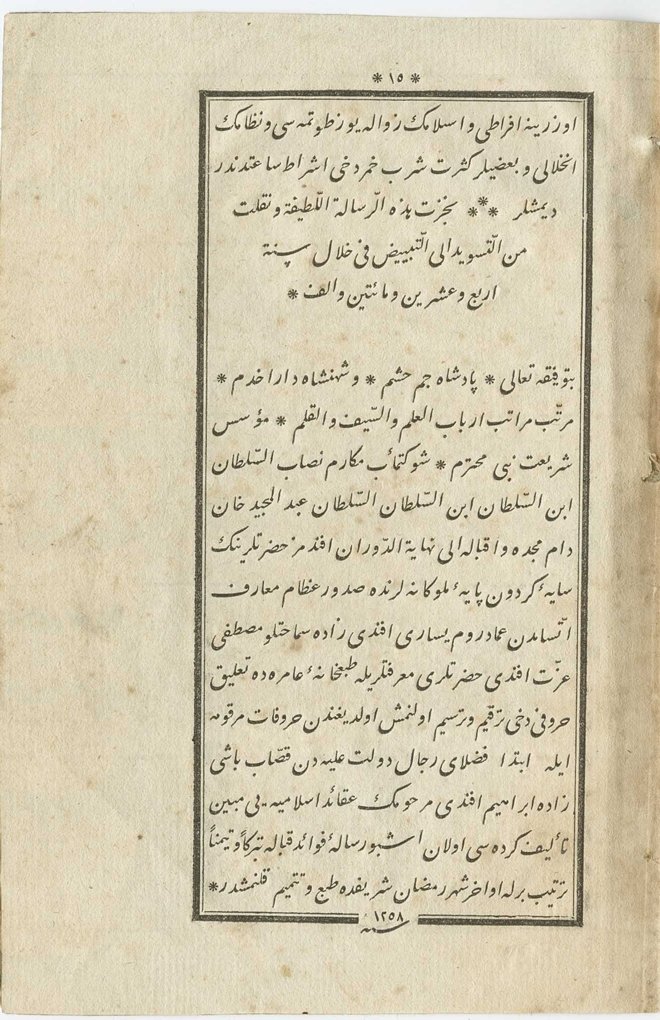 * ١٥ *
اوزرينه افراطى و اسلامك زواله يوز طوتمه سى و نظامك
انحلالى و بعضيلر كثرت شرب خمر دخى اشراط ساعتدندر
ديمشلر *** نجزت هذه الرّسالة اللّطيفة و نقلت
من التّسويد الى التّبييض فى خلال سنة
اربع و عشرين و مائتين و الف *
بتوفيقه تعالى * پادشاه جم حشم * و شهنشاه دارا خدم *
مرتّب مراتب ارباب العلم والسّيف و القلم * مؤسس
شريعت نبى محترم * شوكتمآب مكارم نصاب السّلطان
ابن السّلطان ابن السّلطان السّلطان عبد المجيد خان
دام مجده و اقباله الى نهاية الدّوران افندمز حضرتلرينك
سايۀ كردون پايۀ ملوكانه لرنده صدور عظام معارف
اتّسامدن عماد روم يسارى افندى زاده سماحتلو مصطفى
عزّت افندى حضرتلرى معرفتلريله طبعخانۀ عامره ده تعليق
حروفى دخى ترقيم و ترسيم اولنمش اولديغندن حروفات مرقومه
ايله ابتدا فضلاى رجال دولت عليه دن قصّاب باشى
زاده ابراهيم افندى مرحومك عقائد اسلاميه يى مبين
تأليف كرده سى اولان اشبو رسالۀ فوائد قباله تبركاً و تيمناً
ترتيب برله اواخر شهر رمضان شريفده طبع و تتميم قلنمشدر *
سنه ١٢٥٨